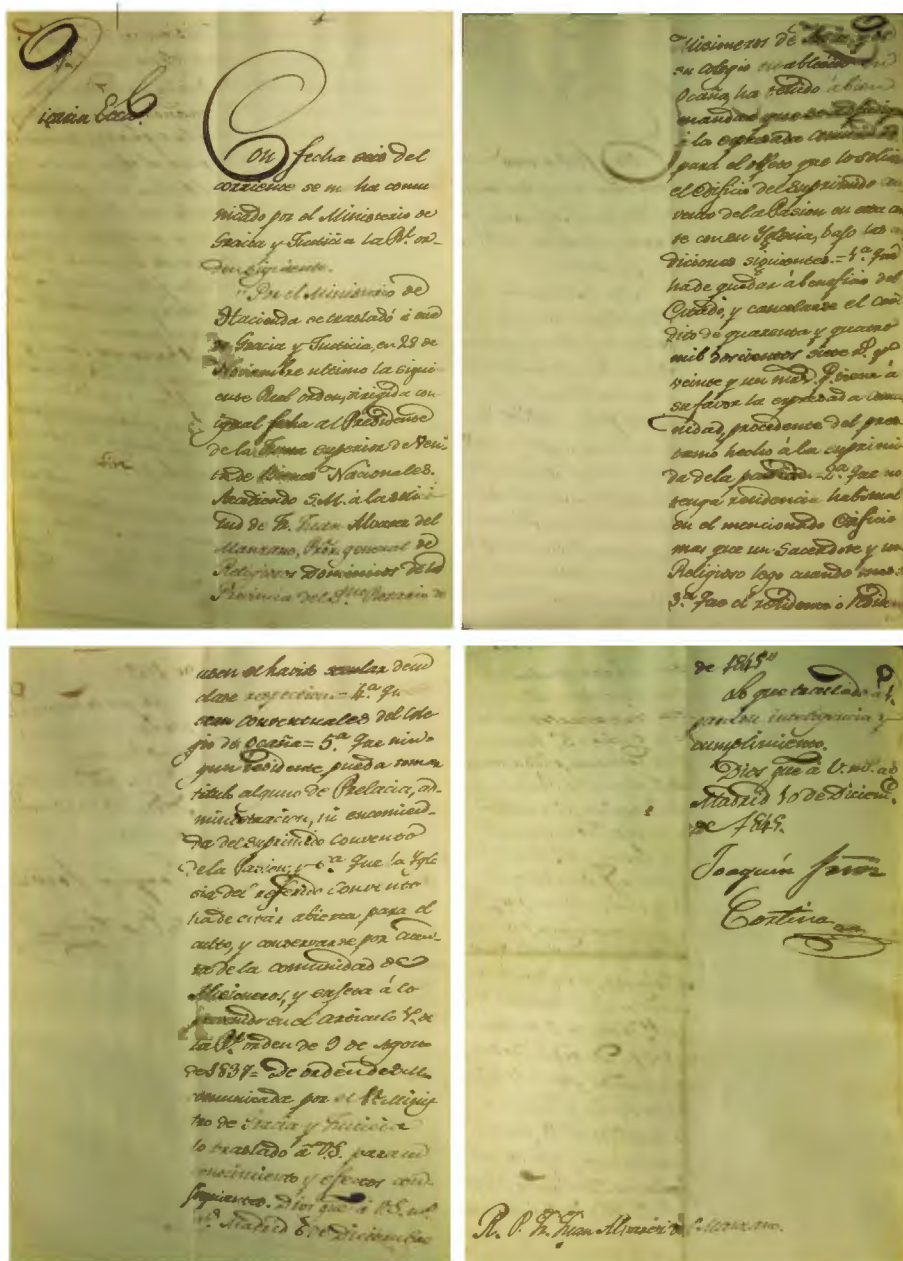 icaria Ecca.
Con fecha seis del
corriente se m ha comu
nicado por el Ministerio de
Gracia y Justicia la Rl. or_
den siguiente.
"Por el Ministerio de
Hacienda se trasladó á
de Gracia y Justicia, en 28 de
Noviembre ultimo la sigui
ente Real orden, dirigida con
igual fecha al Presidente
de la Junta superior de Ven_
ta de Bienes Nacionales.
Accediendo S.M. á la solici
tud de Fr. Juan Alvarez del
Manzano, Pror. general de
Religiosos Dominicos de la
Provincia del Smo. Rosario de
Misioneros de
su colegio establecido en
Ocaña, ha tenido á bien
mandar que se
á la espresada comunidad
para el objeto que lo solicita
el edificio del suprimido con
vento de la Pasion en esta cor
te con su Yglesia, bajo las con
diciones siguientes. = 1.ª Que
ha de quedar á beneficio del
Estado, y cancelarse el cré
dito de quarenta y quatro
mil doscientos siete Rs. y
veinte y un mrs. q. tiene á
su favor la espresada comu
nidad, procedente del pres
tamo hecho á la suprimi
da de la pasion. = 2.ª Que no
tenga residencia habitual
en el mencionado Edificio
mas que un Sacerdote y un
Religioso lego cuando mas =
3.ª Que el residente ó
usen el havito secular de su
clase respectiva. = 4.ª Qe
sean conventuales del Cole
gio de Ocaña = 5.ª Que nin_
gun residente pueda tomar
titulo alguno de Prelacia, ad_
ministracion, ni encomien_
da del suprimido convento
de la Pasion; y 6.ª Que la Ygle
sia del referido Convento
ha de estar abierta para el
culto, y conservarse por cuen_
ta de la comunidad de
Misioneros, y sugeta á lo
prevenido en el articulo 1.º de
la Rl. orden de 9 de Agosto
de 1837 = De orden de S.M.
comunicada por el Sr. Minis
tro de Gracia y Justicia
lo traslado á V.S. para su
conocimiento y efectos con_
siguientes. Dios gue. á V.S. ms.
as. Madrid 6 de Diciembre
de 1845"
Lo que traslado á V.
para su inteligencia y
cumplimiento.
Dios gue. á V. ms. as.
Madrid 10 de Diciem.e
de 1845.
Joaquin
Cortina
R. P. Fr. Juan Alvarez del Manzano.